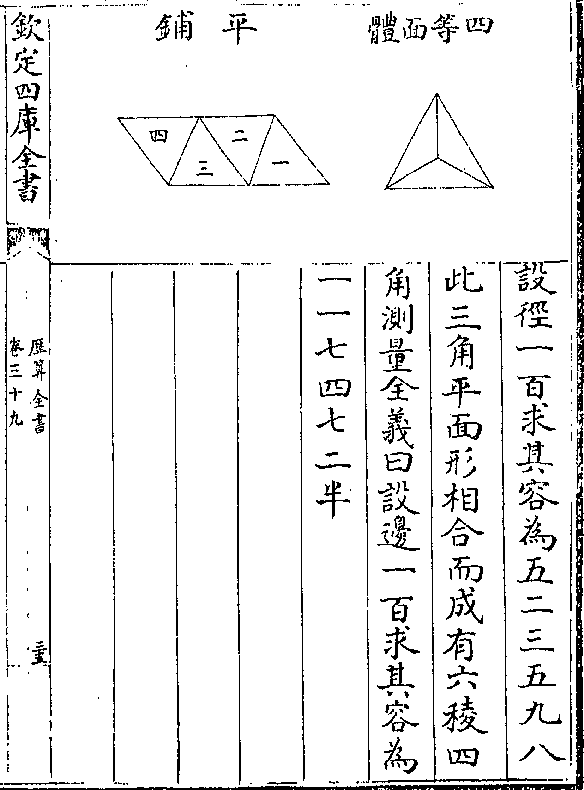 四等面體
平鋪
一
二
三
四
設徑一百求其容為五二三五九八
此三角平面形相合而成有六稜四
角測量全義曰設邊一百求其容為
一一七四七二半
欽定四庫全書
歷算全書
卷三十九